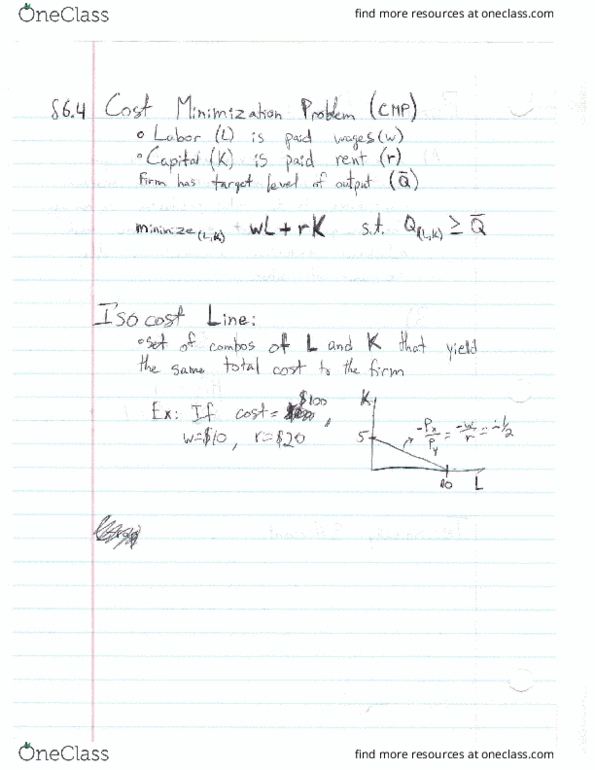 OneClass
find more resources at oneclass.com
§6.4 Cost Minimization Problem (CMP)
• Labor (L) is paid wages (w)
• Capital (K) is paid rent (r)
Firm has target level of output (Q̄)
minimize(L,K) wL + rK s.t. Q(L,K) ≥ Q̄
Isocost Line:
• set of combos of L and K that yield
the same total cost to the firm
Ex: If cost = $100,
w=$10, r=$20
K
5
-Px/Py = -w/r = -1/2
10 L
OneClass
find more resources at oneclass.com